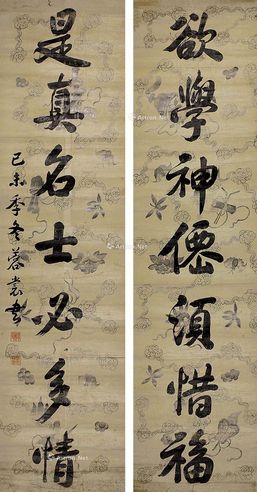 欲學神僊須惜福
是真名士必多情
己未季冬蓉裳書
Artron.Net
Artron.Net